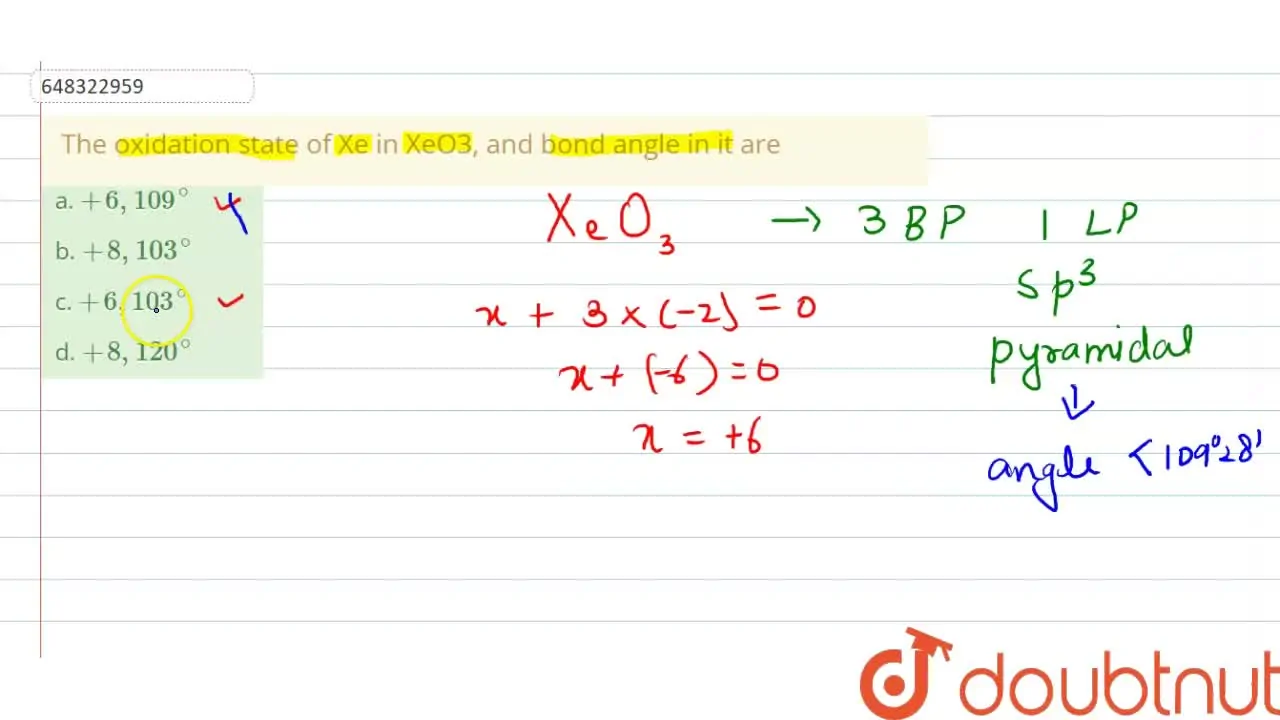 648322959
The oxidation state of Xe in XeO3, and bond angle in it are
a. +6, 109°
b. +8, 103°
c. +6, 103°
d. +8, 120°
XeO₃ → 3 BP 1 LP
sp³
x + 3 × (-2) = 0
pyramidal
x + (-6) = 0
x = +6
angle < 109°28'
doubtnut